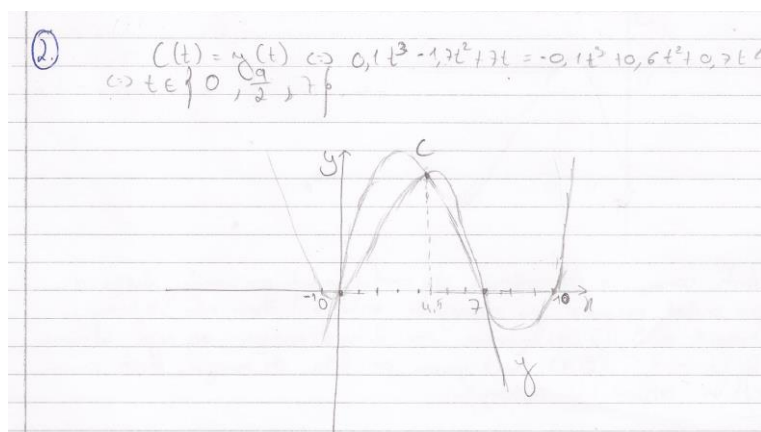 2.
C(t) = y(t) ⇔ 0,1t³ - 1,7t² + 7t = -0,1t³ + 0,6t² + 0,7t ⇔
⇔ t ∈ { 0 , 9/2 , 7 }
y
C
-1
0
4,5
7
10
x
y